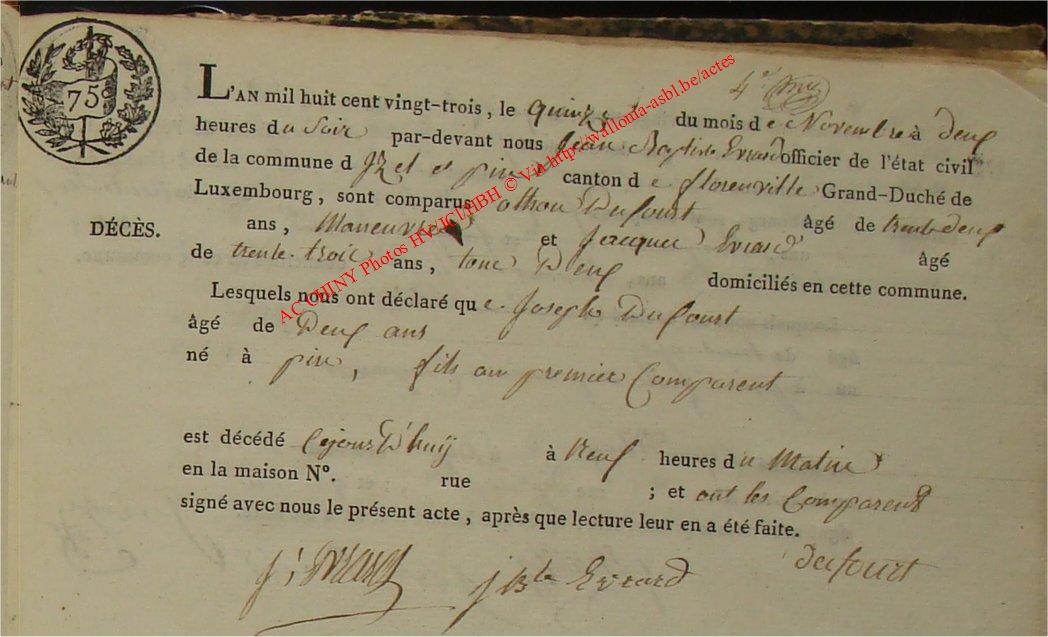 75c
4e
L'AN mil huit cent vingt-trois, le quinze du mois de Novembre à Deux
heures du Soir par-devant nous Jean Baptiste Evrard officier de l'état civil
de la commune d'Izel et pin canton de florenville Grand-Duché de
Luxembourg, sont comparus Dufourt âgé de trente Deux
DÉCÈS.
ans, Maneuvre et Jacques Evrard âgé
de trente-trois ans, tous Deux domiciliés en cette commune.
Lesquels nous ont déclaré que Joseph Dufourt
âgé de Deux ans
né à pin, fils au premier Comparent
est décédé Cejourd'huÿ à Neuf heures du Matin
en la maison N°. rue ; et ont les Comparens
signé avec nous le présent acte, après que lecture leur en a été faite.
J: Evrard JBte Evrard dufourt
AC CHINY Photos HV/JCl/HBH © Via http://wallonia-asbl.be/actes